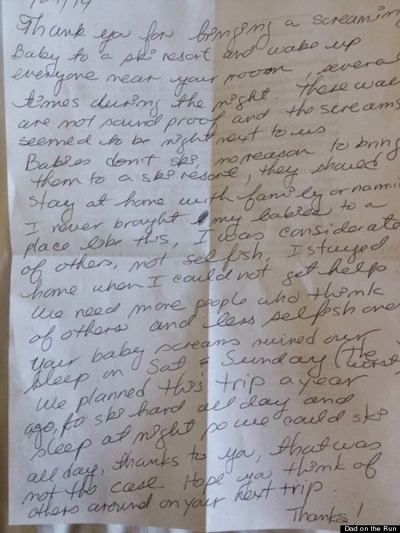 Thank you for bringing a screaming
Baby to a ski resort and wake up
everyone near your room, several
times during the night. These wall
are not sound proof and the screams
seemed to be right next to us
Babies don't ski, no reason to bring
them to a ski resort, they should
stay at home with family or nanni
I never brought my babies to a
place like this, I was considerate
of others, not selfish, I stayed
home when I could not get help.
We need more people who think
of others and less selfish ones
your baby screams ruined our
sleep on Sat & Sunday (the worst)
We planned this trip a year
ago, to ski hard all day and
sleep at night so we could ski
all day, thanks to you, that was
not the case. Hope you think of
others around on your next trip.
Thanks!
Dad on the Run